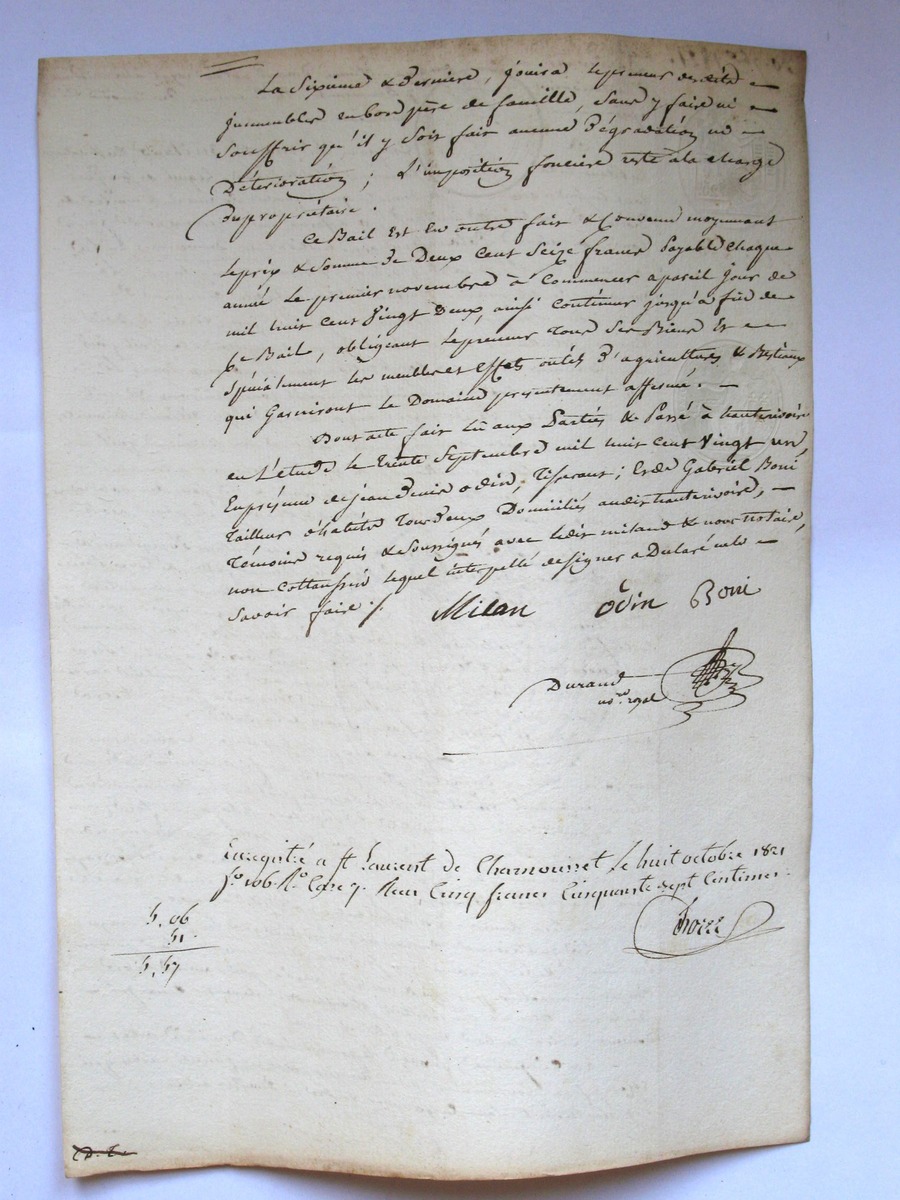 La Sixième & Derniere, jouira lepreneur desdits
jmmeubles en bon père de famille, sans y faire ni
souffrir qu'il y soit fait aucune Dégradation ni
Détérioration; L'imposition foncière reste à la charge
Du propriétaire.
Ce Bail Est En outre fait & Convenu moyennant
le prix & Somme De Deux Cent Seize francs payable chaque
année Le premier novembre à Commencer a pareil jour de
mil huit cent Vingt Deux, ainsi Continuer jusqu'à fin de
ce Bail, obligeant Lepreneur Tous Ses Biens Et
Spécialement les meubles et effets outils D'agricultures & Bestiaux
qui Garniront Le Domaine présentement affermé.
Dont acte fait Lu aux Parties & Passé à hauterivoire
en L'étude le Trente Septembre mil huit cent Vingt un
En présence de jean Denis odin, Tisserant; Et de Gabriel Boni
Tailleur d'habits Tous Deux Domiciliés audit hauterivoire,
Témoins requis & Soussignés avec ledit miland & nous notaire,
non lequel interpellé de signer a Déclaré ne le
Savoir faire.
Milan odin Boni
Durand
no.re royal
Enregistré a St Laurent de Chamousset Le huit octobre 1821
fo. 106 Ro. Case 7. Recu Cinq francs Cinquante sept Centimes.
5,06
51
5,57